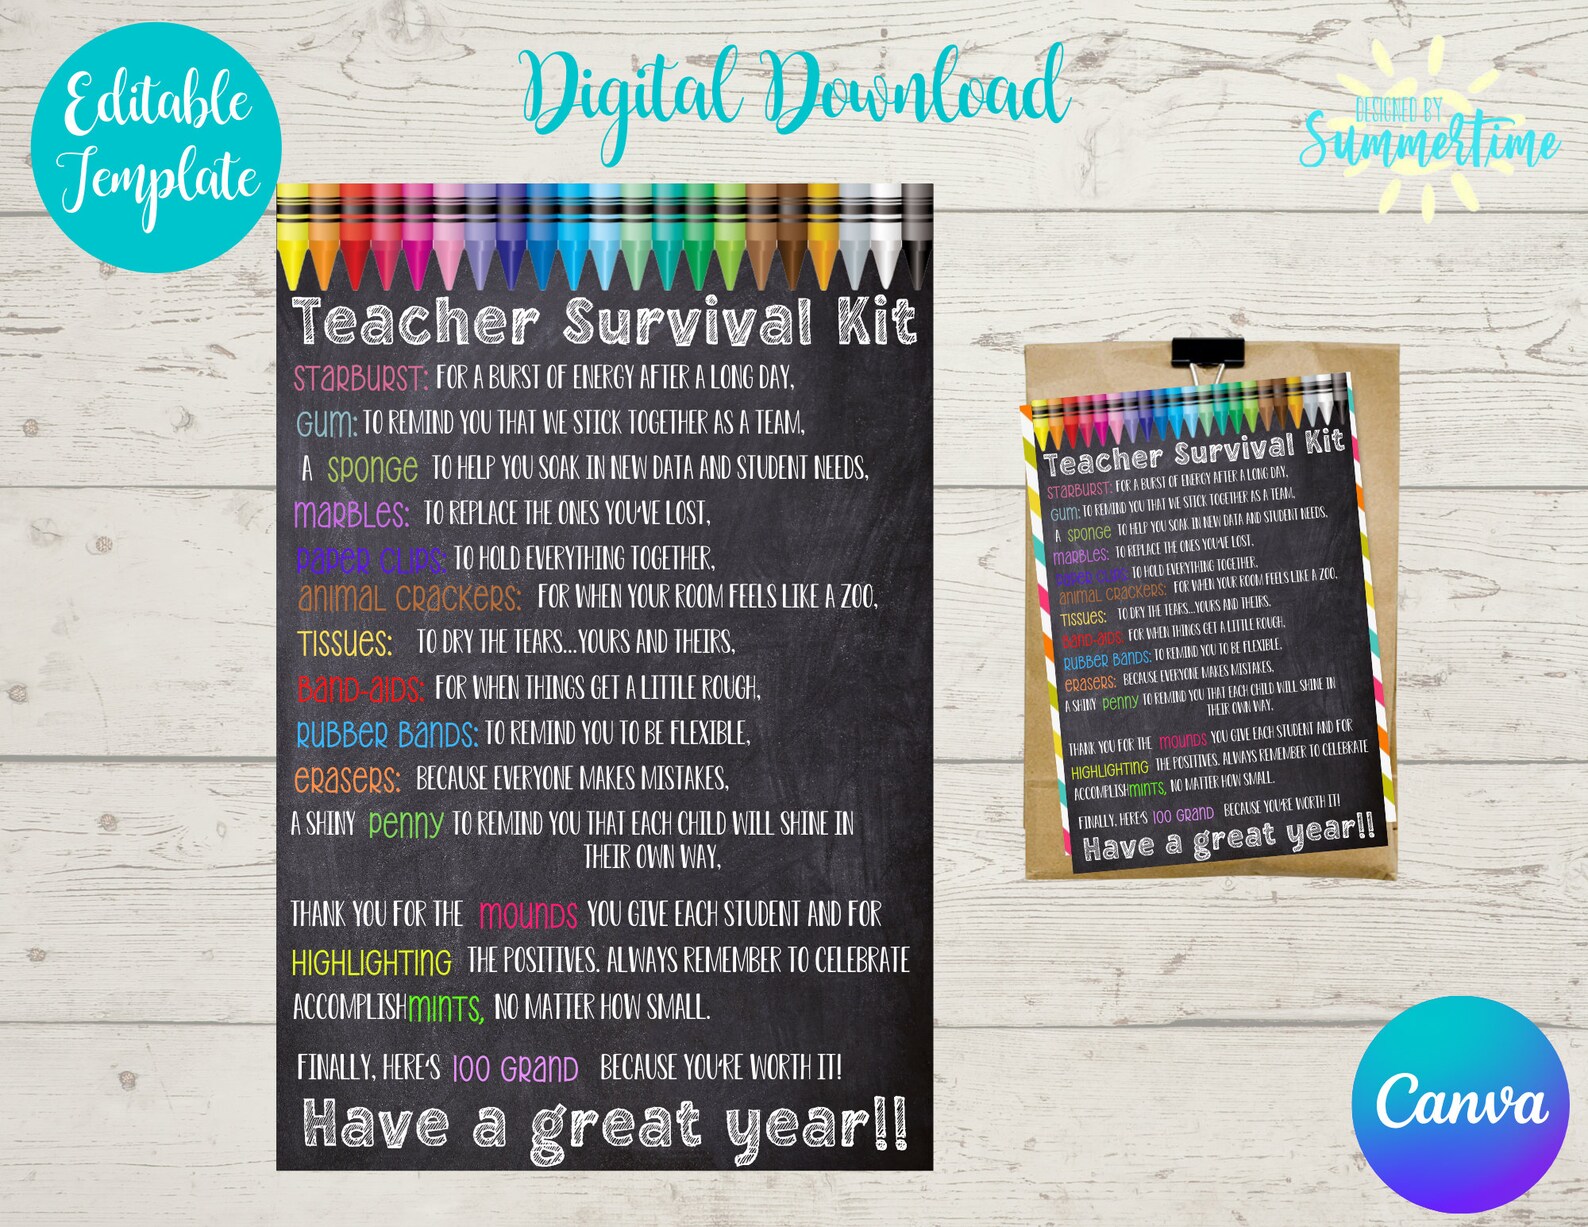 Editable
Template
Digital Download
DESIGNED BY
Summertime
Teacher Survival Kit
STARBURST: FOR A BURST OF ENERGY AFTER A LONG DAY,
GUM: TO REMIND YOU THAT WE STICK TOGETHER AS A TEAM,
A SPONGE TO HELP YOU SOAK IN NEW DATA AND STUDENT NEEDS,
MARBLES: TO REPLACE THE ONES YOU'VE LOST,
PAPER CLIPS: TO HOLD EVERYTHING TOGETHER,
ANIMAL CRACKERS: FOR WHEN YOUR ROOM FEELS LIKE A ZOO,
TISSUES: TO DRY THE TEARS...YOURS AND THEIRS,
BAND-AIDS: FOR WHEN THINGS GET A LITTLE ROUGH,
RUBBER BANDS: TO REMIND YOU TO BE FLEXIBLE,
ERASERS: BECAUSE EVERYONE MAKES MISTAKES,
A SHINY PENNY TO REMIND YOU THAT EACH CHILD WILL SHINE IN
THEIR OWN WAY,
THANK YOU FOR THE MOUNDS YOU GIVE EACH STUDENT AND FOR
HIGHLIGHTING THE POSITIVES. ALWAYS REMEMBER TO CELEBRATE
ACCOMPLISHMINTS, NO MATTER HOW SMALL.
FINALLY, HERE'S 100 GRAND BECAUSE YOU'RE WORTH IT!
Have a great year!!
Teacher Survival Kit
STARBURST: FOR A BURST OF ENERGY AFTER A LONG DAY,
GUM: TO REMIND YOU THAT WE STICK TOGETHER AS A TEAM,
A SPONGE TO HELP YOU SOAK IN NEW DATA AND STUDENT NEEDS,
MARBLES: TO REPLACE THE ONES YOU'VE LOST,
PAPER CLIPS: TO HOLD EVERYTHING TOGETHER,
ANIMAL CRACKERS: FOR WHEN YOUR ROOM FEELS LIKE A ZOO,
TISSUES: TO DRY THE TEARS...YOURS AND THEIRS,
BAND-AIDS: FOR WHEN THINGS GET A LITTLE ROUGH,
RUBBER BANDS: TO REMIND YOU TO BE FLEXIBLE,
ERASERS: BECAUSE EVERYONE MAKES MISTAKES,
A SHINY PENNY TO REMIND YOU THAT EACH CHILD WILL SHINE IN
THEIR OWN WAY,
THANK YOU FOR THE MOUNDS YOU GIVE EACH STUDENT AND FOR
HIGHLIGHTING THE POSITIVES. ALWAYS REMEMBER TO CELEBRATE
ACCOMPLISHMINTS, NO MATTER HOW SMALL.
FINALLY, HERE'S 100 GRAND BECAUSE YOU'RE WORTH IT!
Have a great year!!
Canva